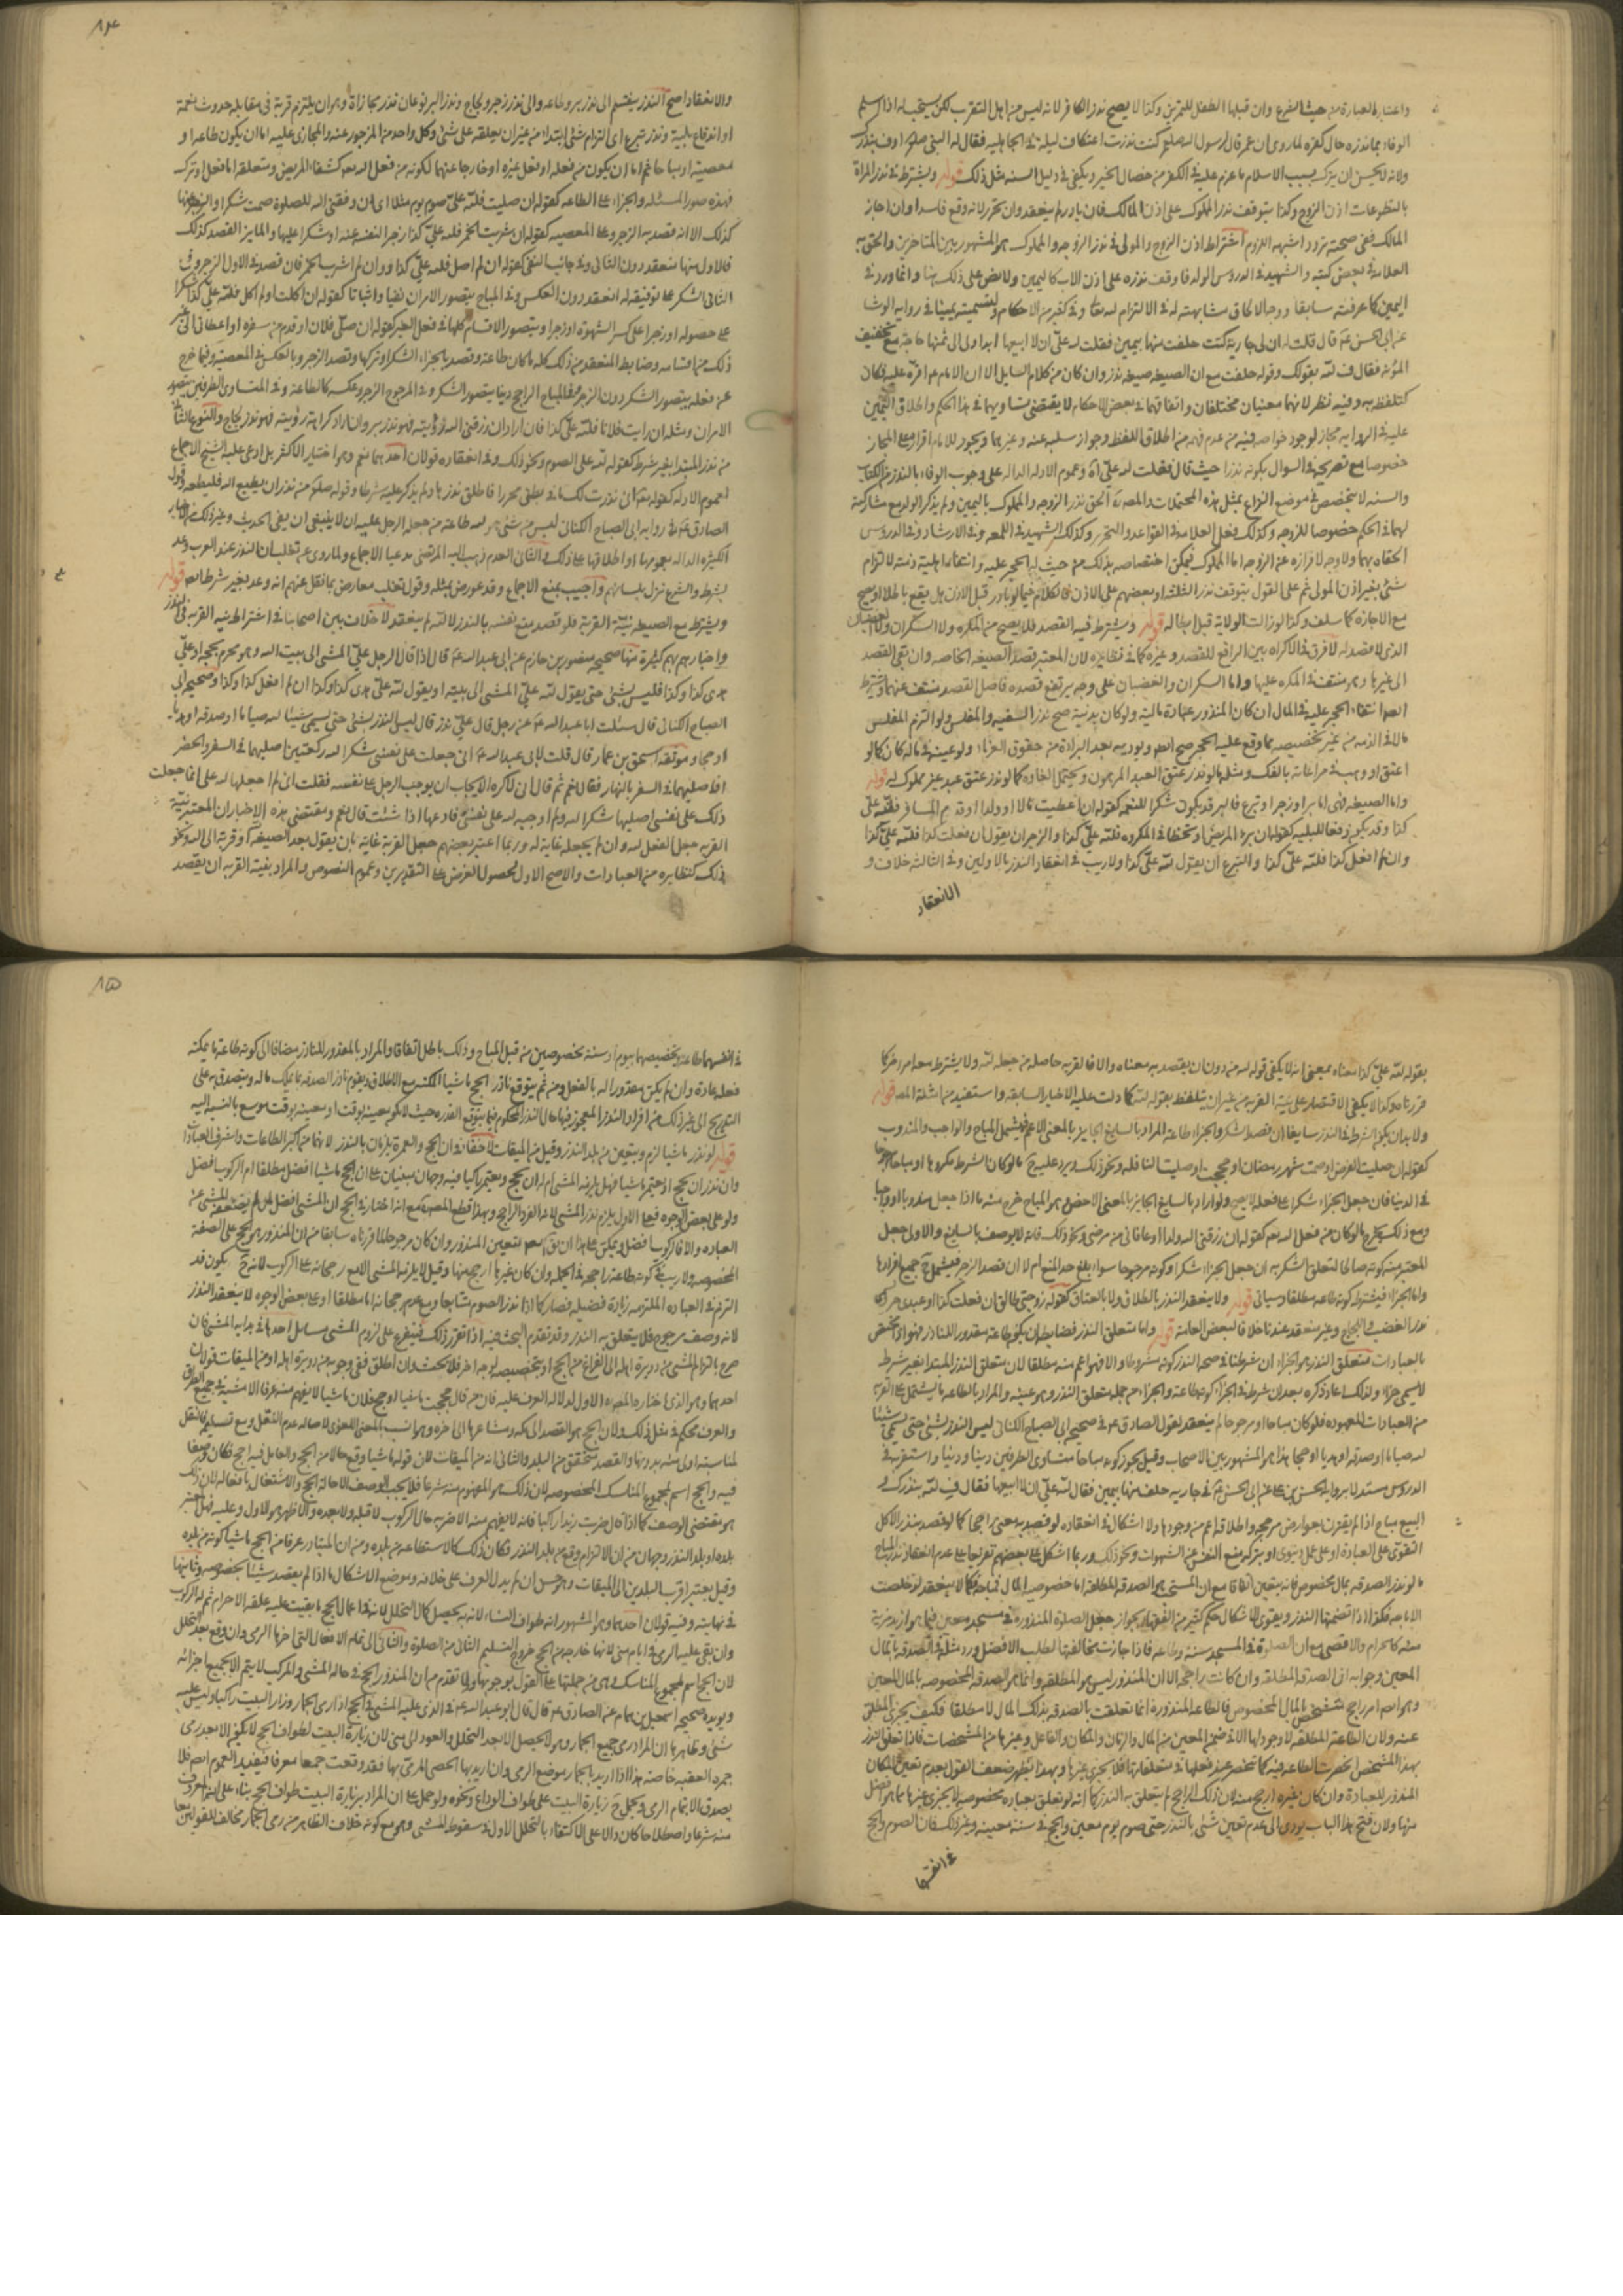 واعتبار العبارة من حيث الشرع وان قبلها الطفل للتمرين وكذا لا يصح نذر الكافر لانه ليس من اهل التقرب لكن يستحب له اذا اسلم
الوفاء بما نذره حال كفره لما روى ان عمر قال لرسول الله صلعم كنت نذرت اعتكاف ليلة في الجاهلية فقال له النبي صلعم اوف بنذرك
ولانه لا يحسن ان يترك بسبب الاسلام ما عزم عليه في الكفر من خصال الخير ويكفي في دليل السنه مثل ذلك قوله ويشترط في نذر المراة
بالتطوعات اذن الزوج وكذا يتوقف نذر المملوك على اذن المالك فان بادر لم ينعقد وان تحرر لانه وقع فاسدا وان اجاز
المالك ففي صحته تردد اشبهه اللزوم اشتراط اذن الزوج والمولى في نذر الزوجه والمملوك هو المشهور بين المتاخرين والحق به
العلامه في بعض كتبه والشهيد في الدروس الولد فاوقف نذره على اذن الاب كاليمين ولا نص على ذلك هنا وانما ورد في
اليمين كما عرفته سابقا ووجه الالحاق مشابهته له في الالتزام لله تعالى وفي كثير من الاحكام ولتسميته يمينا في رواية الوشا
عن ابي الحسن عم قال قلت له ان لي جارية كنت حلفت منها بيمين فقلت لله علي ان لا ابيعها ابدا ولى الى ثمنها حاجة مع تخفيف
المؤنه فقال ف لله بقولك وقوله حلفت مع ان الصيغه صيغه نذر وان كان من كلام السايل الا ان الامام عم اقره عليه فكان
كتلفظه به وفيه نظر لانهما معنيان مختلفان واتفاقهما في بعض الاحكام لا يقتضى تساويهما في هذا الحكم واطلاق اليمين
عليه في الرواية مجاز لوجود خواصه فيه من عدم فهمه من اطلاق اللفظ وجواز سلبه عنه وغيرهما ويجوز للامام اقراره على المجاز
خصوصا مع تصريحه في السوال بكونه نذرا حيث قال فقلت لله علي آه وعموم الادلة الدالة على وجوب الوفاء بالنذر من الكتاب
والسنه لا يتخصص في موضع النزاع بمثل هذه المحتملات والمصنف الحق نذر الزوجه والمملوك باليمين ولم يذكر الولد مع مشاركته
لهما في الحكم خصوصا للزوجه وكذلك فعل العلامه في القواعد والتحرير وكذلك الشهيد في اللمعه وفي الارشاد وفي الدروس
الحقاه بهما ولا وجه لافرازه عن الزوجه اما المملوك فيمكن اختصاصه بذلك من حيث الحجر عليه وانتفاء اهلية ذمته لالتزام
شئ بغير اذن المولى ثم على القول بتوقف نذر الثلثه او بعضهم على الاذن فالكلام فيما لو بادر قبل الاذن هل يقع باطلا او يصح
مع الاجازه كما سلف وكذا لو زالت الولاية قبل ابطاله قوله ويشترط فيه القصد فلا يصح من المكره ولا السكران ولا الغضبان
الذي لا قصد له لا فرق في الاكراه بين الرافع للقصد وغيره كما في نظايره لان المعتبر قصد الصيغه الخاصه وان بقى القصد
الى غيرها وهو منتف في المكره عليها واما السكران والغضبان على وجه يرتفع قصده فاصل القصد منتف عنهما ويشترط
ايضا انتفاء الحجر عليه في المال ان كان المنذور عبادة مالية ولو كان بدنية صح نذر السفيه والمفلس ولو التزم المفلس
مالا في الذمه من غير تخصيصه بما وقع عليه الحجر صح ايضا ويوديه بعد البراءة من حقوق الغرماء ولو عينه في ماله كان كما لو
اعتق او وهب في مراعاته بالفك ومثله ما لو نذر عتق العبد المرهون ويحتمل الغاءه كما لو نذر عتق عبد غير مملوك له قوله
واما الصيغه فهي اما بر او زجر او تبرع فالبر قد يكون شكرا للنعمه كقوله ان اعطيت مالا او ولدا او قدم المسافر فلله على
كذا وقد يكون دفعا للبليه كقوله ان برء المريض او تخطاني المكروه فلله علي كذا والزجر ان يقول ان فعلت كذا فلله علي كذا
وان لم افعل كذا فلله علي كذا والتبرع ان يقول لله علي كذا ولا ريب في انعقاد النذر بالاولين وفي الثالث خلاف و
الانعقاد
١٤
والانعقاد اصح النذر ينقسم الى نذر بر وطاعه والى نذر زجر ولجاج ونذر البر نوعان نذر مجازاة وهو ان يلتزم قربة في مقابله حدوث نعمة
او اندفاع بلية ونذر تبرع اى التزام شئ ابتداء من غير ان يعلقه على شئ وكل واحد من المزجور عنه والمجازى عليه اما ان يكون طاعه او
معصية او مباحا ثم اما ان يكون من فعله او فعل غيره او خارجا عنهما لكونه من فعل الله تعه كشفاء المريض ومتعلقه اما فعل او ترك
فهذه صور المسئله والجزاء على الطاعه كقوله ان صليت فلله علي صوم يوم مثلا اى ان وفقني الله للصلوة صمت شكرا والزجر عنها
كذلك الا انه قصد به الزجر وعلى المعصيه كقوله ان شربت الخمر فلله علي كذا زجرا لنفسه عنه او شكرا عليها والمايز القصد كذلك
فالاول منها منعقد دون الثاني وفي جانب النفي كقوله ان لم اصل فلله علي كذا وان لم اشرب الخمر فان قصد في الاول الزجر وفي
الثاني الشكر على توفيقه له انعقد دون العكس وفي المباح يتصور الامران نفيا واثباتا كقوله ان اكلت او لم آكل فلله علي كذا شكرا
على حصوله او زجرا على كسر الشهوة او زجرا ويتصور الاقسام كلها في فعل الغير كقوله ان صلى فلان او قدم من سفره او اعطاني الى غير
ذلك من اقسامه وضابط المنعقد من ذلك كله ما كان طاعة وقصد بالجزاء الشكر او تركها وقصد الزجر وبالعكس في المعصية وفيما خرج
عن فعله يتصور الشكر دون الزجر وفي المباح الراجح دينا يتصور الشكر وفي المرجوح الزجر وعكسه كالطاعة وفي المتساوى الطرفين يتصور
الامران ومثله ان رايت فلانا فلله علي كذا فان اراد ان رزقني الله رؤيته فهو نذر بر وان اراد كراهة رؤيته فهو نذر لجاج والنوع الثاني
من نذر المبتدا بغير شرط كقوله لله علي الصوم ونحو ذلك وفي انعقاده قولان احدهما نعم وهو اختيار الاكثر بل ادعى عليه الشيخ الاجماع
لعموم الادله كقوله تعه اني نذرت لك ما في بطني محررا فاطلق نذرها ولم يذكر عليه شرطا وقوله صلعم من نذر ان يطيع الله فليطعه وقول
الصادق عم في رواية ابي الصباح الكناني ليس من شئ هو لله طاعة من جعله الرجل عليه الا ينبغي ان يفي به الحديث وغير ذلك من الاخبار
الكثيرة الدالة بعمومها او اطلاقها على ذلك والثاني العدم ذهب اليه المرتضى مدعيا الاجماع ولما روى عن ثعلب ان النذر عند العرب وعد
بشرط والشرع نزل بلسانهم واجيب بمنع الاجماع وقد عورض بمثله وقول ثعلب معارض بما نقل عنهم انه وعد بغير شرط ايضا قوله
ويشترط مع الصيغه نية القربة فلو قصد منع نفسه بالنذر لا لله لم ينعقد لا خلاف بين اصحابنا في اشتراط نية القربة في النذر
واخبارهم بهم كثيرة منها صحيحه منصور بن حازم عن ابي عبدالله عم قال اذا قال الرجل علي المشى الى بيت الله وهو محرم بحجة او علي
هدى كذا وكذا فليس بشئ حتى يقول لله علي المشى الى بيته او يقول لله علي هدى كذا وكذا ان لم افعل كذا وكذا وصحيحه ابي
الصباح الكناني قال سئلت ابا عبدالله عم عن رجل قال علي نذر قال ليس النذر بشئ حتى يسمى شيئا لله صياما او صدقه او هديا
او حجا وموثقه اسحق بن عمار قال قلت لابي عبدالله عم اني جعلت على نفسي شكرا لله ركعتين اصليهما في السفر والحضر
افاصليهما في السفر بالنهار فقال نعم ثم قال اني لاكره الايجاب ان يوجب الرجل على نفسه فقلت اني لم اجعلها لله علي انما جعلت
ذلك على نفسي اصليها شكرا لله ولم اوجبه لله على نفسي فادعها اذا شئت قال نعم ومقتضى هذه الاخبار ان المعتبر نية
القربه جعل الفعل لله وان لم يجعله غاية له وربما اعتبر بعضهم جعل القربة غاية بان يقول بعد الصيغه او قربة الى الله ونحو
ذلك كنظايره من العبادات والاصح الاول لحصول الغرض على التقديرين وعموم النصوص والمراد بنية القربه ان يقصد
بقوله لله علي كذا معناه بمعنى انه لا يكفي قوله لله من دون ان يقصد به معناه والا فالقربه حاصله من جعله لله ولا يشترط معه امر اخر كما
قررناه وكذا لا يكفى الاقتصار على نية القربه من غير ان يتلفظ بقوله لله كما دلت عليه الاخبار السابقه واستفيد من امثلة المصنف قوله
ولا بد ان يكون الشرط في النذر سايغا ان قصد الشكر والجزاء طاعة المراد بالسايغ الجايز بالمعنى الاعم فيشمل المباح والواجب والمندوب
كقوله ان صليت الفرض او صمت شهر رمضان او حججت او صليت النافله ونحو ذلك ويرد عليه ح ما لو كان الشرط مكروها او مباحا مرجوحا
في الدنيا فان جعل الجزاء شكرا على فعله لا يصح ولو اراد بالسايغ الجايز بالمعنى الاخص وهو المباح خرج منه ما اذا جعل مندوبا او واجبا
ومع ذلك يخرج ما لو كان من فعل الله تعه كقوله ان رزقني الله ولدا او عافاني من مرضى ونحو ذلك فانه لا يوصف بالسايغ والاولى جعل
المعتبر منه كونه صالحا لتعلق الشكر به ان جعل الجزاء شكرا وكونه مرجوحا سواء بلغ حد المنع ام لا ان قصد الزجر فيشمل ح جميع افرادها
واما الجزاء فيشترط كونه طاعه مطلقا وسياتي قوله ولا ينعقد النذر بالطلاق ولا بالعتاق كقوله زوجتي طالق ان فعلت كذا او عبدى حر اى
نذر الغضب واللجاج وغير منعقد عندنا خلافا لبعض العامة قوله واما متعلق النذر فضابطه ان يكون طاعة مقدورا للناذر فهو اذا مختص
بالعبادات متعلق النذر هو الجزاء ان شرطنا في صحة النذر كونه مشروطا والا فهو اعم منه مطلقا لان متعلق النذر المبتدا بغير شرط
لا يسمى جزاء ولذلك اعاد ذكره بعد ان شرط في الجزاء كونه طاعة والجزاء من جملة متعلق النذر وهو عينه والمراد بالطاعة ما يشتمل على القربه
من العبادات المعهوده فلو كان مباحا او مرجوحا لم ينعقد لقول الصادق عم في صحيحه ابي الصباح الكناني ليس النذر بشئ حتى يسمى شيئا
لله صياما او صدقه او هديا او حجا هذا هو المشهور بين الاصحاب وقيل يجوز كونه مباحا متساوى الطرفين دينا ودنيا واستقربه في
الدروس مستدلا برواية الحسن بن علي عن ابي الحسن عم في جارية حلف منها بيمين فقال لله علي ان لا ابيعها فقال ف لله بنذرك و
البيع مباح اذا لم يقترن بعوارض مرجحه واطلاقه اعم من وجودها ولا اشكال في انعقاده لو قصد به معنى راجحا كما لو قصد بنذر الاكل
التقوى على العبادة او على عمل دنيوى او بتركه منع النفس عن الشهوات ونحو ذلك وربما اشكل على بعضهم تفريعا على عدم انعقاد نذر المباح
ما لو نذر الصدقه بمال مخصوص فانه يتعين اتفاقا مع ان المستحب هو الصدقه المطلقه اما خصوصيه المال فمباحه فكما لا ينعقد لو خلصت
الاباحه فكذا اذا تضمنها النذر ويقوى الاشكال حكم كثير من الفقهاء بجواز جعل الصلوة المنذوره في مسجد معين فيما هو ازيد مزية
منه كالحرام والاقصى مع ان الصلوة في المسجد سنة وطاعه فاذا جازت مخالفتها لطلب الافضل ورد مثله في الصدقه بالمال
المعين وجوابه ان الصدقه المطلقه وان كانت راجحه الا ان المنذور ليس هو المطلقه وانما هو الصدقه المخصوصه بالمال المعين
وهو امر راجح متشخص بالمال المخصوص فالطاعه المنذورة انما تعلقت بالصدقه بذلك المال لا مطلقا فكيف يجزى المطلق
عنه ولان الطاعة المطلقه لا وجود لها الا في ضمن المعين من المال والزمان والمكان والفاعل وغيرها من المشخصات فاذا تعلق النذر
بهذا المشخص انحصرت الطاعه فيه كما تنحصر عند فعلها في متعلقاتها فلا يجزى غيرها وبهذا يظهر ضعف القول بعدم تعين المكان
المنذور للعبادة وان كان غيره ارجح منه لان ذلك الراجح لم يتعلق به النذر كما انه لو تعلق بعبادة مخصوصه لا يجزى غيرها مما هو افضل
منها ولان فتح هذا الباب يودى الى عدم تعين شئ بالنذر حتى صوم يوم معين والحج في سنة معينه وغير ذلك فان الصوم والحج
في انفسهما
١٥
في انفسهما طاعة وتخصيصهما بيوم او سنة مخصوصين من قبل المباح وذلك باطل اتفاقا والمراد بالمقدور للناذر مضافا الى كونه طاعة ما يمكنه
فعله عادة وان لم يكن مقدورا له بالفعل ومن ثم يتوقع ناذر الحج ماشيا المكنه مع الاطلاق ويقوم ناذر الصدقه بما يملك ماله ويتصدق به على
التدريج الى غير ذلك من افراد النذر المعجوز فيها حال النذر المحكوم فيها بتوقع القدره حيث لا يكون معينا بوقت او معينه بوقت موسع بالنسبة اليه
قوله لو نذر ماشيا لزم ويتعين من بلد النذر وقيل من الميقات لا خفاء في ان الحج والعمرة يلزمان بالنذر لانهما من اكبر الطاعات واشرف العبادات
وان نذر ان يحج او يعتمر ماشيا فهل يلزمه المشى ام له ان يحج ويعتمر راكبا فيه وجهان مبنيان على ان الحج ماشيا افضل مطلقا ام الركوب افضل
ولو على بعض الوجوه فعلى الاول يلزم نذر المشى لانه الفرد الراجح وبهذا قطع المصنف مع انه اختار في الحج ان المشى افضل لمن لم يضعفه المشى عن
العباده والا فالركوب افضل ويمكن على هذا ان يق ايضا بتعيين المنذور وان كان مرجوحا لما قررناه سابقا من ان المنذور هو الحج على الصفة
المخصوصه ولا ريب في كونه طاعة راجحه في الجمله وان كان غيرها ارجح منها وقيل لا يلزمه المشى الا مع رجحانه على الركوب لانه ح يكون قد
التزم في العباده الملتزمه زيادة فضيله فصار كما اذا نذر الصوم متتابعا ومع عدم رجحانه اما مطلقا او على بعض الوجوه لا ينعقد النذر
لانه وصف مرجوح فلا يتعلق به النذر وقد تقدم البحث فيه اذا تقرر ذلك فيتفرع على لزوم المشى مسايل احدها في بداية المشى فان
صرح بالتزام المشى من دويرة اهله الى الفراغ من الحج او تخصيصه بوجه اخر فلا بحث وان اطلق ففي وجوبه من دويرة اهله او من الميقات قولان
احدهما وهو الذي اختاره المصنف الاول لدلالة العرف عليه فان من قال حججت ماشيا او حج فلان ماشيا لا يفهم منه عرفا الا مشيه في جميع الطريق
والعرف محكم في مثل ذلك ولان الحج هو القصد الى مكه ومشاعرها الى اخره وهو انسب بالمعنى اللغوى لاصاله عدم النقل ومع تسليمه فالنقل
لمناسبته اولى منه بدونها والقصد متحقق من البلد والثاني انه من الميقات لان قوله ماشيا وقع حالا من الحج والعامل فيه احج فكان وصفا
فيه والحج اسم لمجموع المناسك المخصوصه لان ذلك هو المفهوم منه شرعا فلا يجب الوصف الا حالة الحج والاشتغال بافعاله لان ذلك
هو مقتضى الوصف كما اذا قال ضربت زيدا راكبا فانه لا يفهم منه الا ضربه حال الركوب لا قبله ولا بعده والاظهر هو الاول وعليه فهل المعتبر
بلده او بلد النذر وجهان من ان الالتزام وقع من بلد النذر فكان ذلك كالاستطاعه من بلده ومن ان المتبادر عرفا من الحج ماشيا كونه من بلده
وقيل يعتبر اقرب البلدين الى الميقات وهو حسن ان لم يدل العرف على خلافه وموضع الاشكال ما اذا لم يقصد شيئا بخصوصه وثانيها
في نهايته وفيه قولان احدهما وهو المشهور انه طواف النساء لانه به يحصل كمال التحلل لانه في اعمال الحج ما بقيت عليه علقة الاحرام ثم له الركوب
وان بقى عليه الرمى في ايام منى لانها خارجه من الحج خروج التسليم الثاني من الصلوة والثاني الى تمام الافعال التي اخرها الرمى وان وقع بعد التحلل
لان الحج اسم لمجموع المناسك وهي من جملتها على القول بوجوبها ولما تقدم من ان المنذور الحج في حاله المشى والمركب لا يتم الا بجميع اجزائه
ويويده صحيحه اسمعيل بن همام عن الصادق عم قال قال ابو عبدالله عم في الذي عليه المشى في الحج اذا رمى الجمار وزار البيت راكبا وليس عليه
شئ وظاهرها ان المراد رمى جميع الجمار وهو لا يحصل الا بعد التحلل والعود الى منى لان زيارة البيت لطواف الحج لا يكون الا بعد رمى
جمره العقبه خاصه هذا اذا اريد بالجمار موضع الرمى وان اريد بها الحصى المرمى بها فقد وقعت جمعا معرفا فيفيد العموم ايضا فلا
يصدق الا بتمام الرمى ويحمل ح زيارة البيت على طواف الوداع ونحوه ولو حمل على ان المراد بزيارة البيت طواف الحج بناء على انه المعروف
منه شرعا واصطلاحا كان دالا على الاكتفاء بالتحلل الاول في سقوط المشى وهو مع كونه خلاف الظاهر من رمى الجمار مخالف للقولين معا